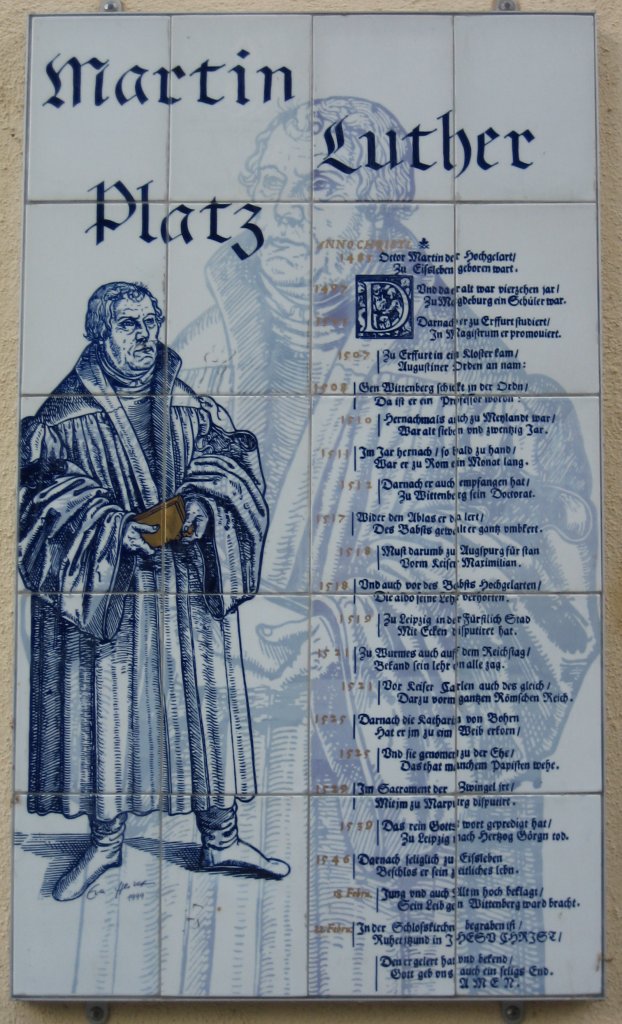 Martin
Luther
Platz
ANNO CHRISTI.
1483 Octor Martin der Hochgelart/
Zu Eissleben geboren wart.
1497 Vnd da er alt war vierzehen jar/
Zu Magdeburg ein Schüler war.
D
Darnach er zu Erffurt studiert/
In Magistrum er promouiert.
1507 Zu Erffurt in ein Kloster kam/
Augustiner Orden an nam:
1508 Gen Wittenberg schickt jn der Ordn/
Da ist er ein Professor wordn:
1510 Hernachmals auch zu Meylandt war/
War alt sieben vnd zwentzig Jar.
1511 Im Jar hernach/ so bald zu hand/
War er zu Rom ein Monat lang.
1512 Darnach er auch empfangen hat/
Zu Wittenberg sein Doctorat.
1517 Wider den Ablas er da lert/
Des Babsts gewalt er gantz vmbkert.
1518 Must darumb zu Augspurg für stan
Vorm Keiser Maximilian.
1518 Vnd auch vor des Babsts Hochgelarten/
Die aldo seine Lehr verhörten.
1519 Zu Leipzig in der Fürstlich Stad
Mit Ecken disputiret hat.
1521 Zu Wurmes auch auff dem Reichstag/
Bekand sein lehr on alle zag.
1521 Vor Keiser Carlen auch des gleich/
Darzu vorm gantzen Römschen Reich.
1525 Darnach die Katharin von Bohren
Hat er jm zu eim Weib erkorn/
1525 Vnd sie genomen zu der Ehe/
Das that manchem Papisten wehe.
1529 Im Sacrament der Zwingel irt/
Mit jm zu Marpurg disputirt.
1539 Das rein Gotts wort gepredigt hat/
Zu Leipzig nach Hertzog Görgn tod.
1546 Darnach seliglich zu Eissleben
Beschlos er sein zeitliches lebn.
18 Febru. Jung vnd auch Alt jn hoch beklagt/
Sein Leib gen Wittenberg ward bracht.
22 Febru. In der Schlosskirchn begraben ist/
Ruhet itzund in JHESV CHRIST/
Den er gelert hat vnd bekend/
Gott geb vns auch ein seligs End.
AMEN.
1999